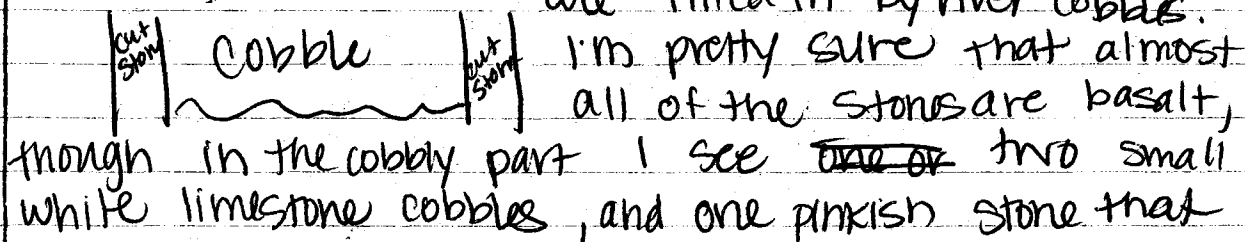 are filled in by river cobbles.
cut stone cobble cut stone I'm pretty sure that almost
all of the stones are basalt,
though in the cobbly part I see one or two small
white limestone cobbles, and one pinkish stone that